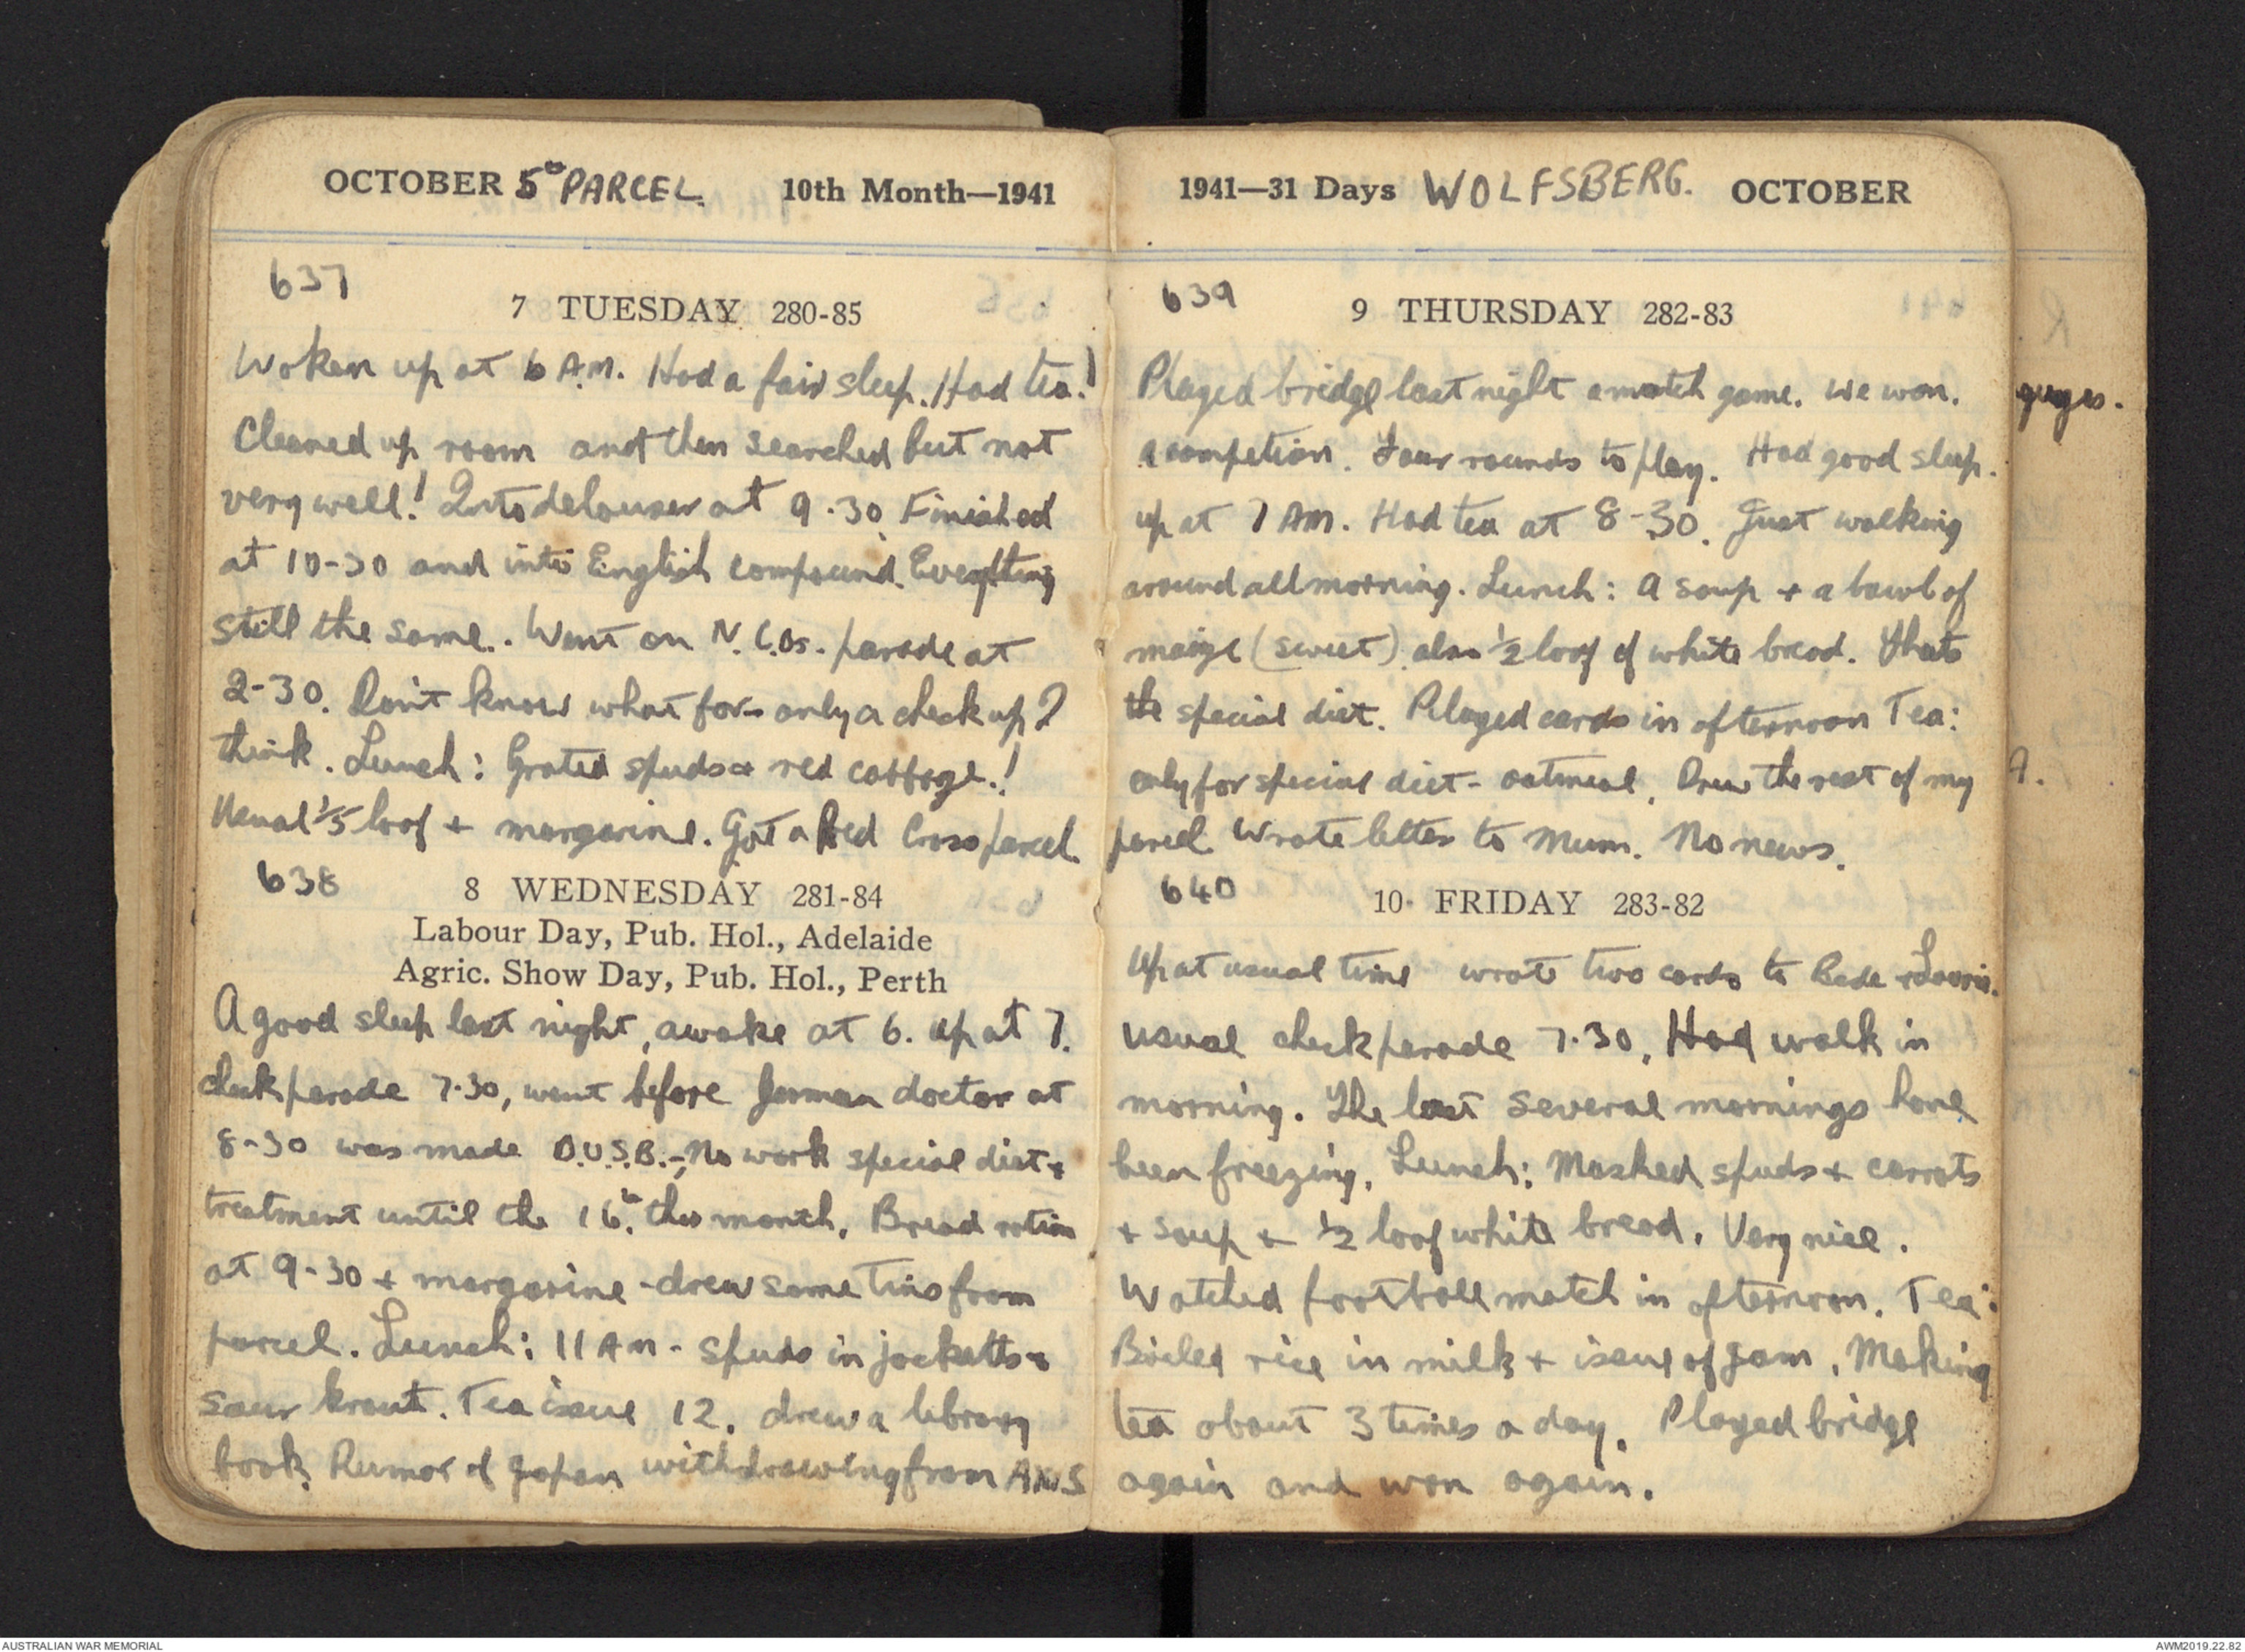 OCTOBER 5th PARCEL. 10th Month—1941
637
7 TUESDAY 280-85
Woken up at 6 A.M. Had a fair sleep. Had tea!
Cleaned up room and then searched but not
very well! Into delouser at 9.30 Finished
at 10-30 and into English compound. Everything
still the same.. Went on N.C.Os. parade at
2-30. Don't know what for - only a check up I
think. Lunch: Grated spuds & red cabbage.!
Usual 1/5 loaf + margarine. Got a Red Cross parcel
638
8 WEDNESDAY 281-84
Labour Day, Pub. Hol., Adelaide
Agric. Show Day, Pub. Hol., Perth
A good sleep last night, awake at 6. up at 7.
check parade 7.30, went before German doctor at
8-30 was made D.U.S.B.-, No work special diet +
treatment until the 16th. this month. Bread ration
at 9-30 + margarine - drew some tins from
parcel. Lunch: 11 AM - spuds in jacketts &
sour kraut. Tea issue 12. drew a library
book. Rumor of Japan withdrawing from AXIS
1941—31 Days WOLFSBERG. OCTOBER
639
9 THURSDAY 282-83
Played bridge last night a match game. We won.
a competion. Four rounds to play. Had good sleep.
up at 7 AM. Had tea at 8-30. Just walking
around all morning. Lunch: a soup + a bowl of
maize (sweet). also 1/2 loaf of white bread. Thats
the special diet. Played cards in afternoon Tea:
only for special diet - oatmeal. Drew the rest of my
parcel. Wrote letter to Mum. No news.
640
10 FRIDAY 283-82
Up at usual time wrote two cards to Bede +
usual check parade 7.30. Had walk in
morning. The last several mornings have
been freezing. Lunch: Mashed spuds + carrots
+ soup + 1/2 loaf white bread. Very nice.
Watched football match in afternoon. Tea:
Boiled rice in milk + issue of jam. Making
tea about 3 times a day. Played bridge
again and won again.
AUSTRALIAN WAR MEMORIAL
AWM2019.22.82